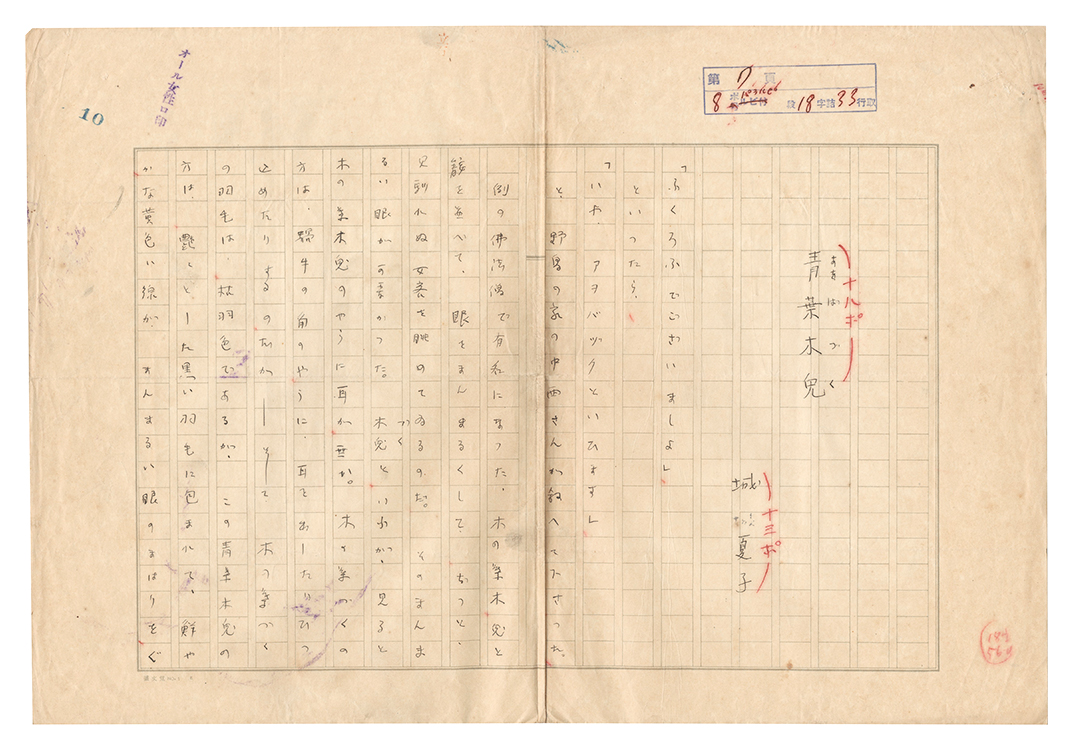 オール女性ロ印
10
第 7 頁
8 ポ 段 18 字詰 33 行
青葉木兎
あをばづく
十八ポ
城夏子
十三ポ
「ふくろふでございましよ」
といつたら、
「いや、アヲバヅクといひます」
と、野鳥の家の中西さんが教へて下さつた。
例の佛法僧で有名になつた、木の葉木兎と
顔を並べて、眼をまんまるくして、ぢつと、
見馴れぬ女客を眺めてゐるのだ。そのまんま
るい眼が可愛かつた。木兎といふが、見ると
づく
木の葉木兎のやうに耳が無い。木の葉づくの
方は、蝸牛の角のやうに、耳を出したりひつ
込めたりするのだが――そして木の葉づく
の羽毛は、枯羽色であるが、この青葉木兎の
方は、艶々とした黒い羽毛に包まれて、鮮や
かな黄色い線が、まんまるい眼のまはりをぐ